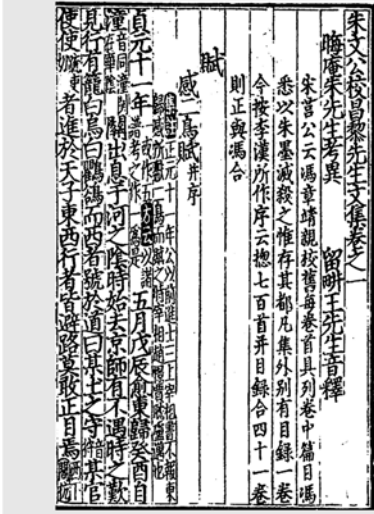 朱文公校昌黎先生文集卷之一
晦庵朱先生考異 留畊王先生音釋
宋莒公云馮章靖親校舊每卷首具列卷中篇目馮
悉以朱墨滅殺之惟存其都凡集外別有目録一卷
今按李漢所作序云摠七百首并目録合四十一卷
則正與馮合
賦
感二鳥賦并序
貞元十一年
五月戊辰愈東歸癸酉自
潼關出息于河之陰時始去京師有不遇時之歎
見行有籠白烏白鸜鵒而西者號於道曰某土之守某官
使使者進於天子東西行者皆避路莫敢正目焉